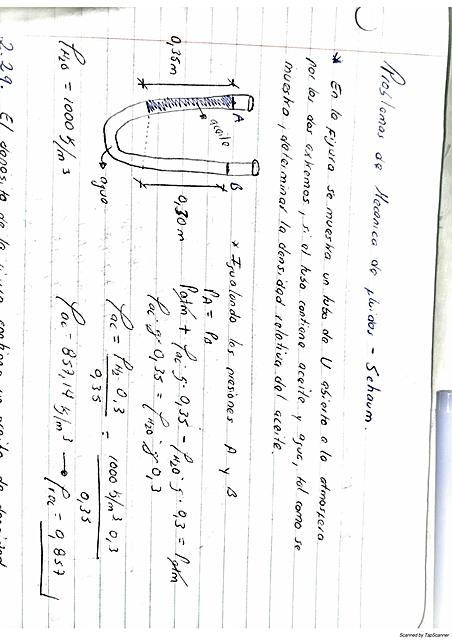 Problemas de Mecanica de fluidos - Schaum.
* En la figura se muestra un tubo de U abierto a la atmosfera
por los dos extremos, si el tubo contiene aceite y agua, tal como se
muestra, determinar la densidad relativa del aceite.
0,35m
A
aceite
B
agua
0,30m
* Igualando las presiones A y B
PA = PB
Patm + ρac·g·0,35 - ρH2O·g·0,3 = Patm
ρac·g·0,35 = ρH2O·g·0,3
ρac = ρH2·0,3 / 0,35 = 1000 kg/m³ 0,3 / 0,35
ρH2O = 1000 kg/m³
ρac = 857,14 kg/m³ → ρrac = 0,857
2.29. El deposito de la figura contiene un aceite de densidad
Scanned by TapScanner